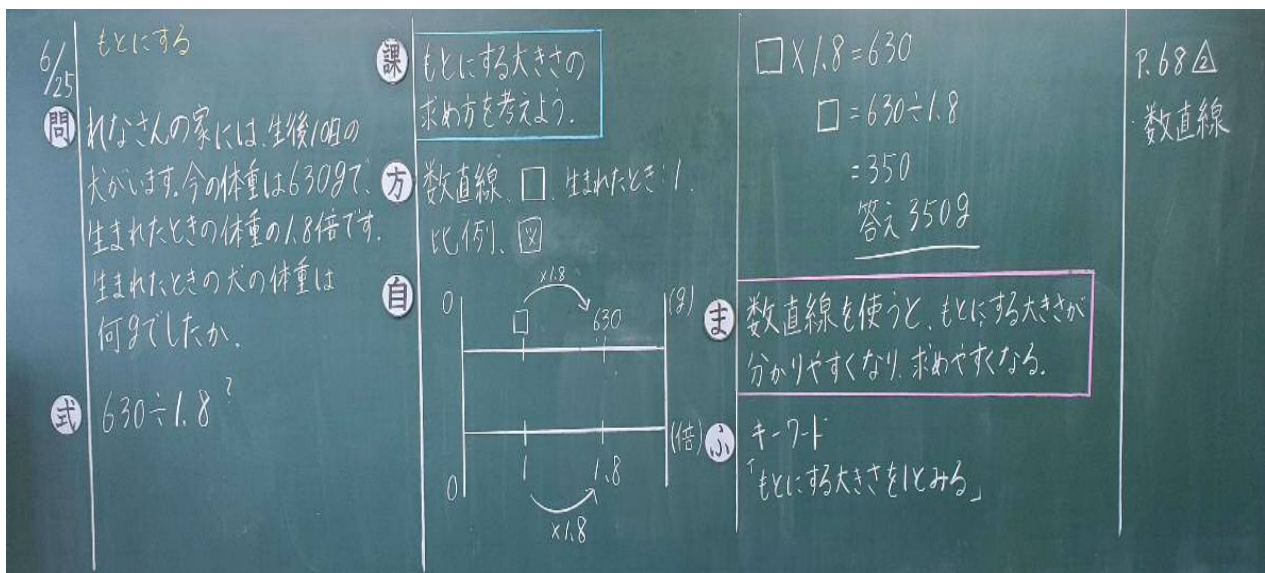 6/25
もとにする
問
れなさんの家には、生後10日の
犬がいます。今の体重は630gで、
生まれたときの体重の1.8倍です。
生まれたときの犬の体重は
何gでしたか。
式
630÷1.8?
課
もとにする大きさの
求め方を考えよう。
方
数直線、□、生まれたとき:1.
比例、図
自
×1.8
0 □ 630 (g)
0 1 1.8 (倍)
×1.8
□×1.8=630
□=630÷1.8
=350
答え 350g
ま
数直線を使うと、もとにする大きさが
分かりやすくなり、求めやすくなる。
ふ
キーワード
「もとにする大きさを1とみる」
P.68 △2
・数直線